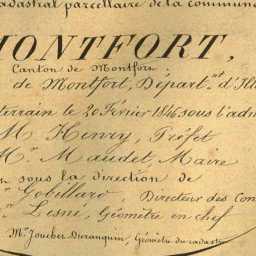 cadastral parcellaire de la commune
MONTFORT,
Canton de Montfort
de Montfort, Départ.nt d'Ill
terrain le 20 Février 1846 sous l'adm
M Henry, Préfet
M.r Maudet, Maire
sous la direction de
Gobillard, Directeur des Con
Lesné, Géomètre en chef
M.r Joucher Duranquin, Géomètre du cadastre